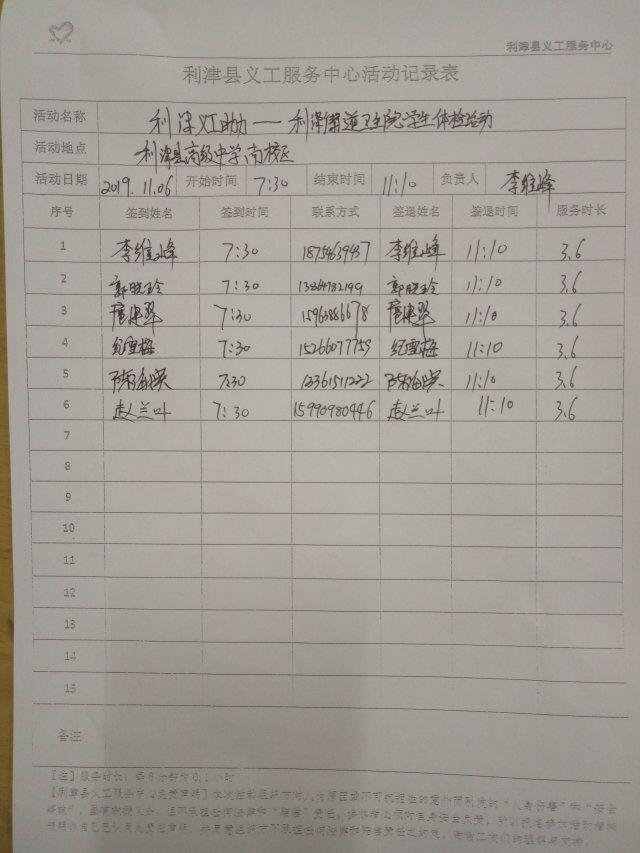 利津县义工服务中心
利津县义工服务中心活动记录表
活动名称 利津义工助力——利津街道卫生院学生体检活动
活动地点 利津县高级中学南校区
活动日期 2019.11.06 开始时间 7:30 结束时间 11:10 负责人 李维峰
序号 签到姓名 签到时间 联系方式 签退姓名 签退时间 服务时长
1 李维峰 7:30 李维峰 11:10 3.6
2 郭晓玲 7:30 郭晓玲 11:10 3.6
3 7:30 11:10 3.6
4 纪雪梅 7:30 15266077759 纪雪梅 11:10 3.6
5 7:30 12361511222 11:10 3.6
6 赵兰叶 7:30 15990980446 赵兰叶 11:10 3.6
7
8
9
10
11
12
13
14
15
备注
【注】服务时长：每6分钟为0.1小时
【利津县义工服务中心免责声明】本次活动组织方对人为原因或不可抗拒性的意外而引发的“人身伤害”和“安全